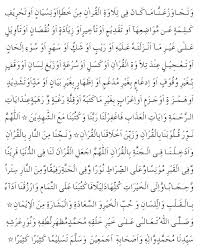 وَتَجَاوَزْ عَنَّا مَا كَانَ فِي تِلَاوَةِ الْقُرْآنِ مِنْ خَطَإٍ أَوْ نِسْيَانٍ أَوْ تَحْرِيفِ
كَلِمَةٍ عَنْ مَوَاضِعِهَا أَوْ تَقْدِيمٍ أَوْ تَأْخِيرٍ أَوْ زِيَادَةٍ أَوْ نُقْصَانٍ أَوْ تَأْوِيلٍ
عَلَى غَيْرِ مَا أَنْزَلْتَهُ عَلَيْهِ أَوْ رَيْبٍ أَوْ شَكٍّ أَوْ سَهْوٍ أَوْ سُوءِ إِلْحَانٍ
أَوْ تَعْجِيلٍ عِنْدَ تِلَاوَةِ الْقُرْآنِ أَوْ كَسَلٍ أَوْ سُرْعَةٍ أَوْ زَيْغِ لِسَانٍ أَوْ وَقْفٍ
بِغَيْرِ وُقُوفٍ أَوْ إِدْغَامٍ بِغَيْرِ مُدْغَمٍ أَوْ إِظْهَارٍ بِغَيْرِ بَيَانٍ أَوْ مَدٍّ أَوْ تَشْدِيدٍ
أَوْ هَمْزَةٍ أَوْ جَزْمٍ أَوْ إِعْرَابٍ بِغَيْرِ مَا كَتَبَهُ أَوْ قِلَّةِ رَغْبَةٍ وَرَهْبَةٍ عِنْدَ آيَاتِ
الرَّحْمَةِ وَآيَاتِ الْعَذَابِ فَاغْفِرْ لَنَا رَبَّنَا وَاكْتُبْنَا مَعَ الشَّاهِدِينَ اَللّٰهُمَّ
نَوِّرْ قُلُوبَنَا بِالْقُرْآنِ وَزَيِّنْ أَخْلَاقَنَا بِالْقُرْآنِ وَنَجِّنَا مِنَ النَّارِ بِالْقُرْآنِ
وَأَدْخِلْنَا فِي الْجَنَّةِ بِالْقُرْآنِ اَللّٰهُمَّ اجْعَلِ الْقُرْآنَ لَنَا فِي الدُّنْيَا قَرِينًا
وَفِي الْقَبْرِ مُونِسًا وَعَلَى الصِّرَاطِ نُورًا وَفِي الْجَنَّةِ رَفِيقًا وَمِنَ النَّارِ سِتْرًا
وَحِجَابًا وَإِلَى الْخَيْرَاتِ كُلِّهَا دَلِيلًا فَاكْتُبْنَا عَلَى التَّمَامِ وَارْزُقْنَا أَدَاءً
بِالْقَلْبِ وَاللِّسَانِ وَحُبِّ الْخَيْرِ وَالسَّعَادَةِ وَالْبِشَارَةِ مِنَ الْإِيمَانِ
وَصَلَّى اللّٰهُ تَعَالَى عَلَى خَيْرِ خَلْقِهِ مُحَمَّدٍ مَظْهَرِ لُطْفِهِ وَنُورِ عَرْشِهِ
سَيِّدِنَا مُحَمَّدٍ وَآلِهِ وَأَصْحَابِهِ أَجْمَعِينَ وَسَلَّمَ تَسْلِيمًا كَثِيرًا كَثِيرًا